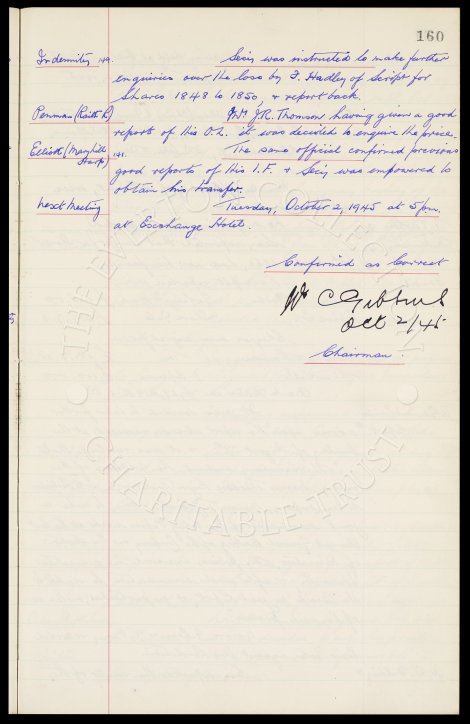 160
Indemnities 149. Secy was instructed to make further
enquiries over the loss by F. Hadley of Script for
Shares 1848 to 1850, & report back.
Penman (Raith R) Mr J.R. Thomson having given a good
report of this O.L. it was decided to enquire the price.
Elliott (Maryhill Harps) 141. The same official confirmed previous
good reports of this I.F. & Secy was empowered to
obtain his transfer.
Next Meeting Tuesday, October 2, 1945 at 5 pm.
at Exchange Hotel.
Confirmed as Correct
Wm C Gibbins
Oct 2/45
Chairman.
THE EVERTON COLLECTION
CHARITABLE TRUST